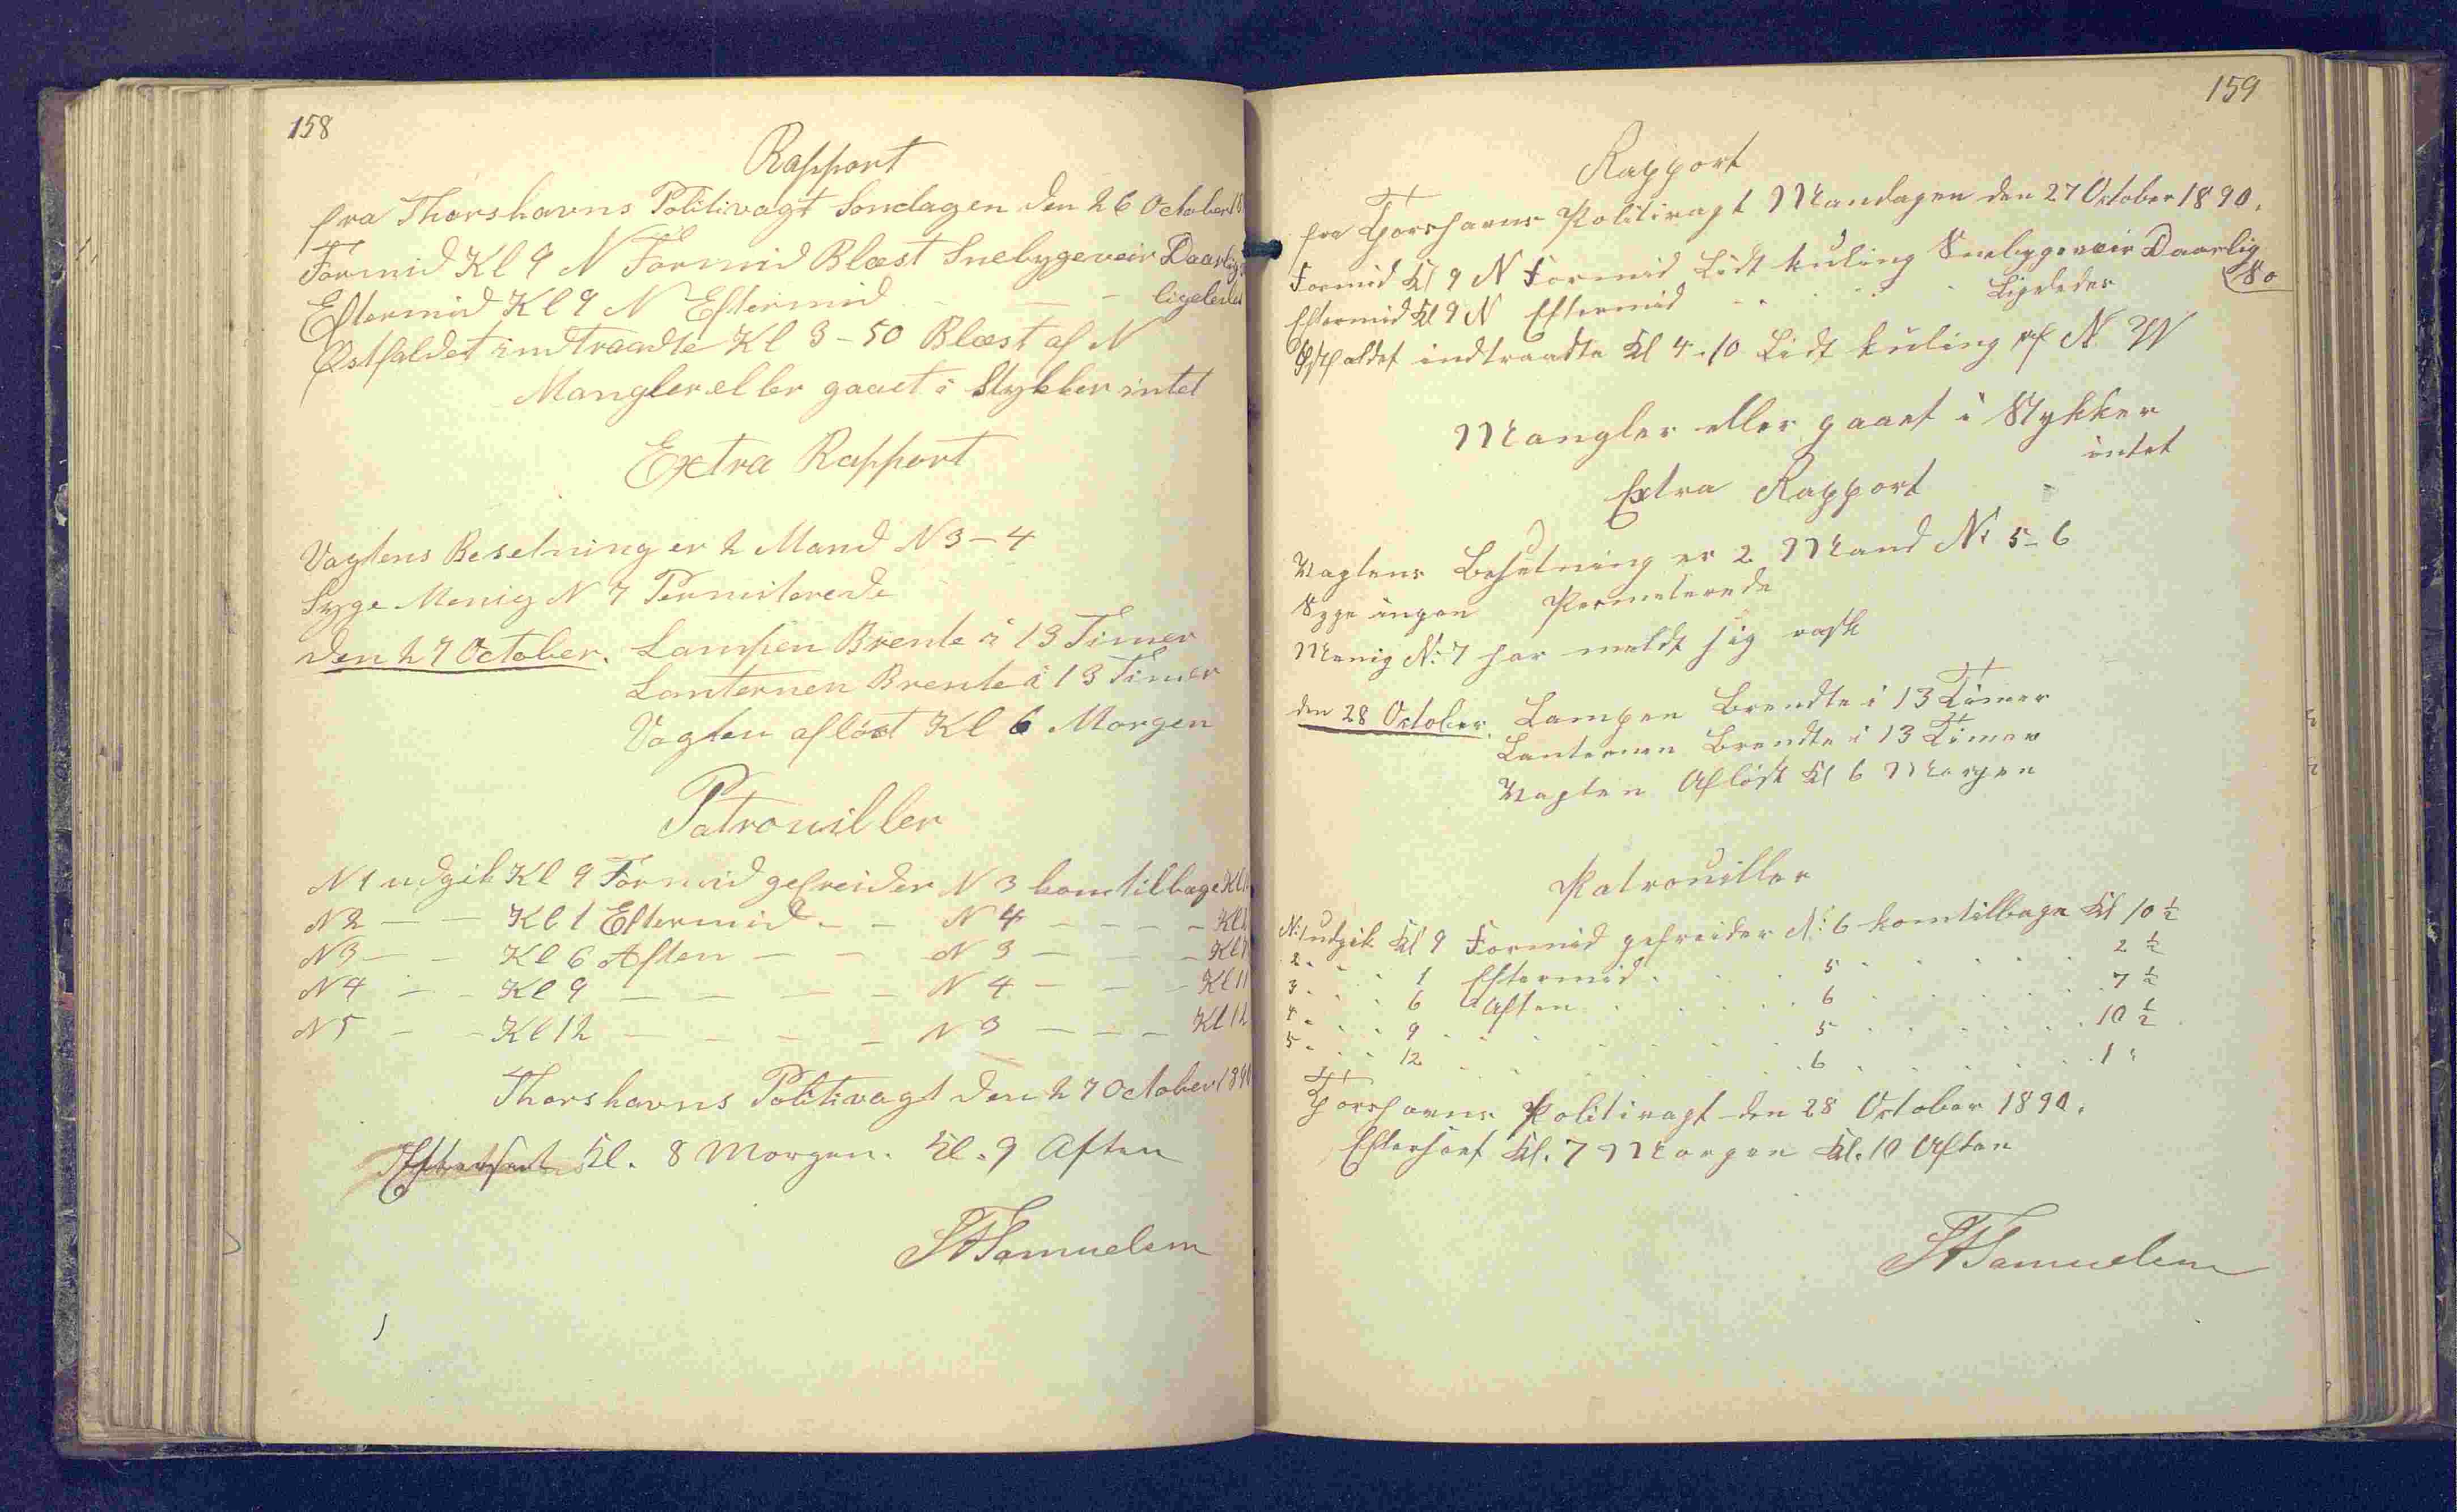 158
Rapport
fra Thorshavns Politivagt Søndagen den 26 October 18
Formid Kl 9 N Formid Blæst Snebygeveir Daarlig
Eftermid Kl 9 N Eftermid - - - ligeledes
Østfaldet indtraadte Kl 3-50 Blæst af N
Mangler eller gaaet i Stykker intet
Extra Rapport
Vagtens Besetning er 2 Mand N 3-4
Syge Menig N 7 Permiterede
den 27 October. Lampen Brente i 13 Timer
Lanternen Brente i 13 Timer
Vagten afløst Kl 6 Morgen
Patrouiller
N 1 udgik Kl 9 Formid gefreider N 3 kom tilbage Kl
N 2 - - Kl 1 Eftermid - - N 4 - - - - Kl
N 3 - - Kl 6 Aften - - N 3 - - - Kl
N 4 - - Kl 9 - - - - N 4 - - - Kl 11
N 5 - - Kl 12 - - - - N 3 - - - Kl 12
Thorshavns Politivagt den 27 October 1890
Efterseet Kl. 8 Morgen. Kl. 9 Aften
SASamuelsen
159
Rapport
fra Thorshavns Politivagt Mandagen den 27 October 1890.
Formid Kl 9 N Formid Lidt kuling Snebygeveir Daarlig
So
Eftermid Kl 9 N Eftermid - - - - Ligeledes
Østfaldet indtraadte Kl 4-10 Lidt kuling af N. W
Mangler eller gaaet i Stykker
intet
Extra Rapport
Vagtens Besetning er 2 Mand N: 5-6
Syge ingen Permeterede
Menig N: 7 har meldt sig rask
den 28 October. Lampen Brendte i 13 Timer
Lanternen Brendte i 13 Timer
Vagten Afløst Kl 6 Morgen
Patrouiller
N: 1 udgik Kl 9 Formid gefreider N: 6 kom tilbage Kl 10 ½
2 - - - 1 Eftermid . . . 5 . . . . 2 ½
3 . . . 6 Aften . . . . 6 . . . . 7 ½
4 . . . 9 . . . . . . 5 . . . . 10 ½
5 . . . 12 . . . . . . 6 . . . . 1 "
Thorshavns Politivagt den 28 October 1890.
Efterseet Kl. 7 Morgen Kl. 10 Aften
SASamuelsen